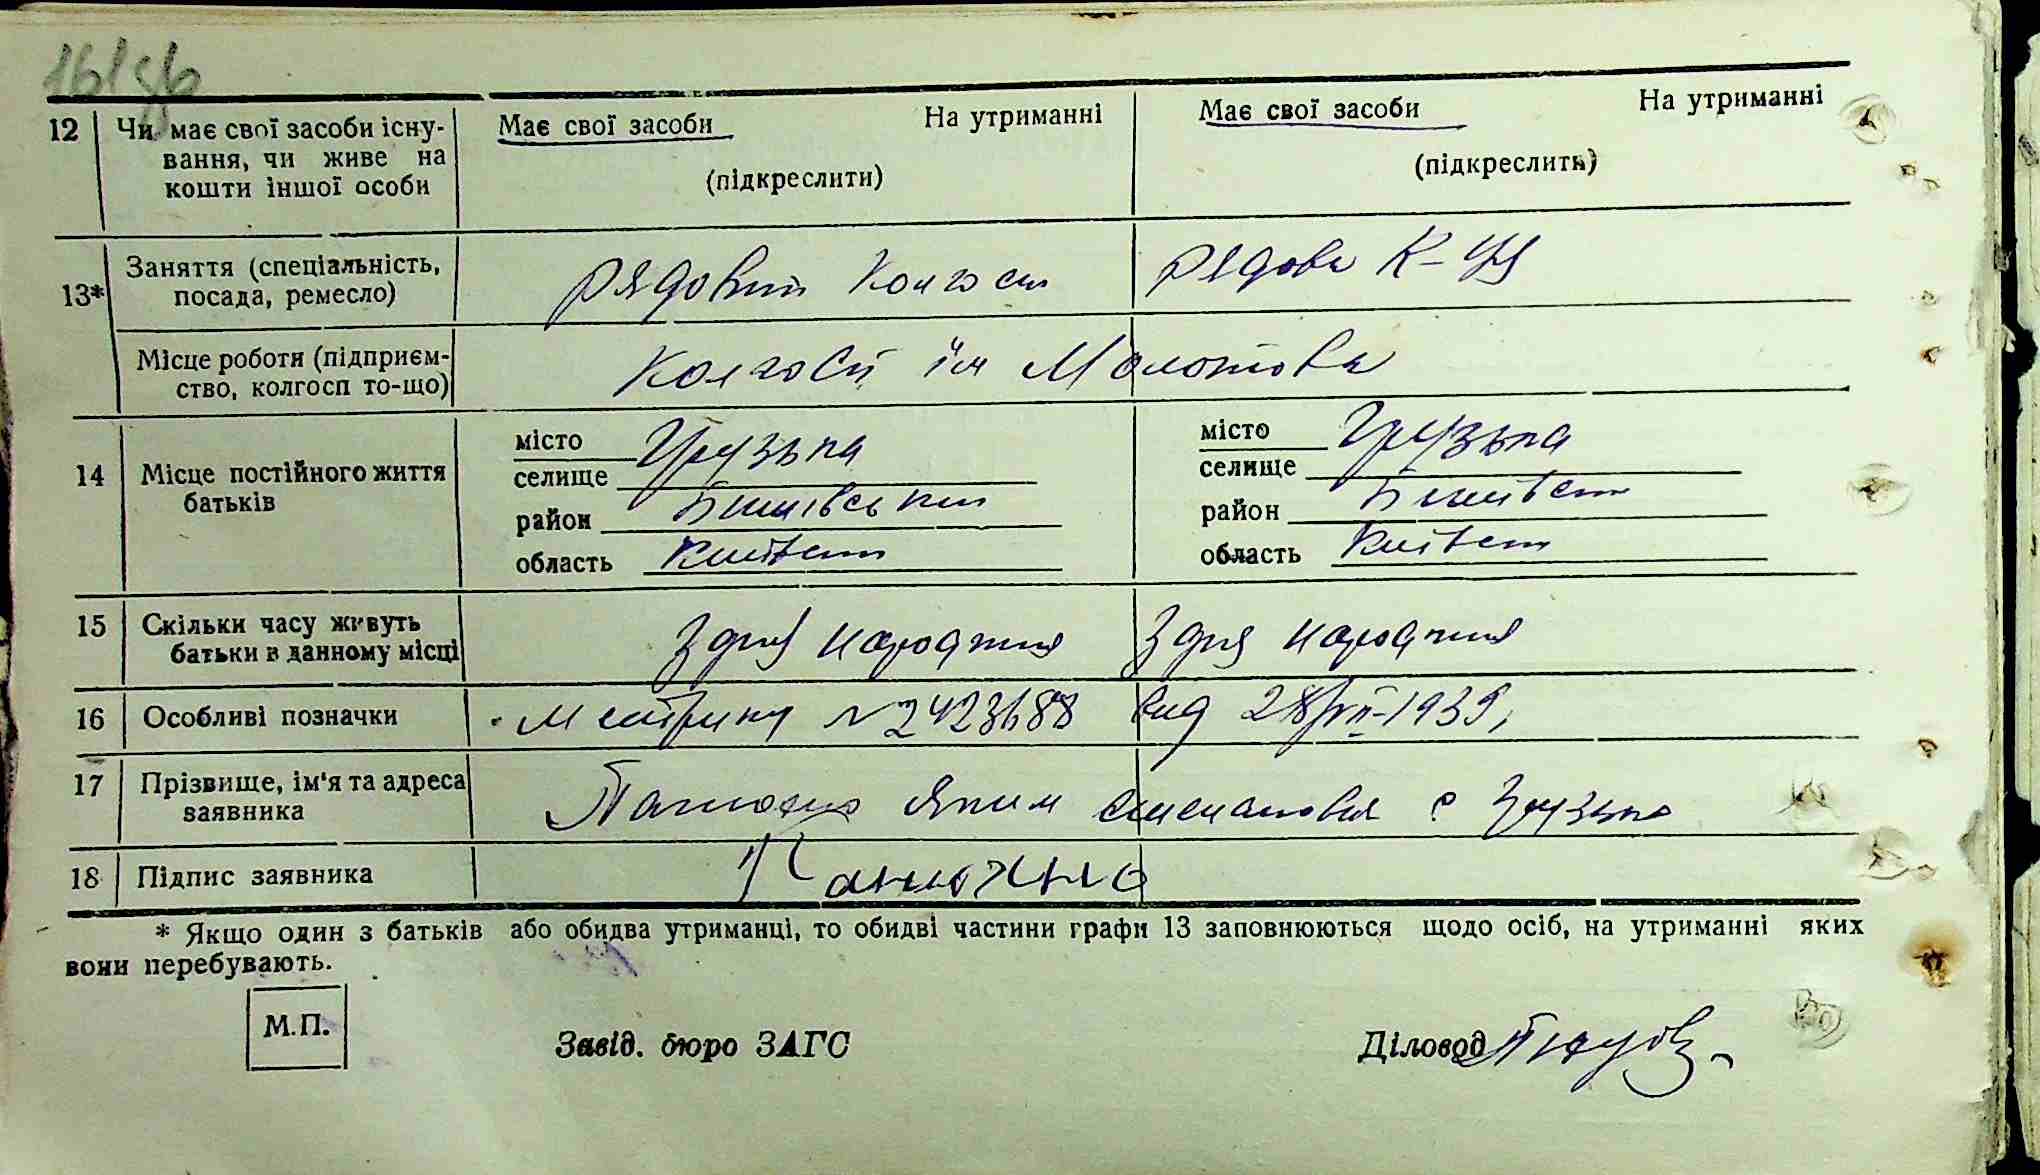 12 Чи має свої засоби існу- Має свої засоби На утриманні Має свої засоби На утриманні
вання, чи живе на
кошти іншої особи (підкреслити) (підкреслить)
13* Заняття (спеціальність, рядовий колгосп рядова к-ці
посада, ремесло)
Місце роботи (підприєм- Колгосп ім Молотова
ство, колгосп то-що)
14 Місце постійного життя батьків
місто Грузька місто Грузька
селище селище
район Бишівський район
область Київськ область Київськ
15 Скільки часу живуть З дня народження З дня народження
батьки в данному місці
16 Особливі позначки Метрику № 2423688 вид 28/VII-1939,
17 Прізвище, ім'я та адреса Яким с Грузьке
заявника
18 Підпис заявника
* Якщо один з батьків або обидва утриманці, то обидві частини графи 13 заповнюються щодо осіб, на утриманні яких
вони перебувають.
М.П.
Завід. бюро ЗАГС Діловод